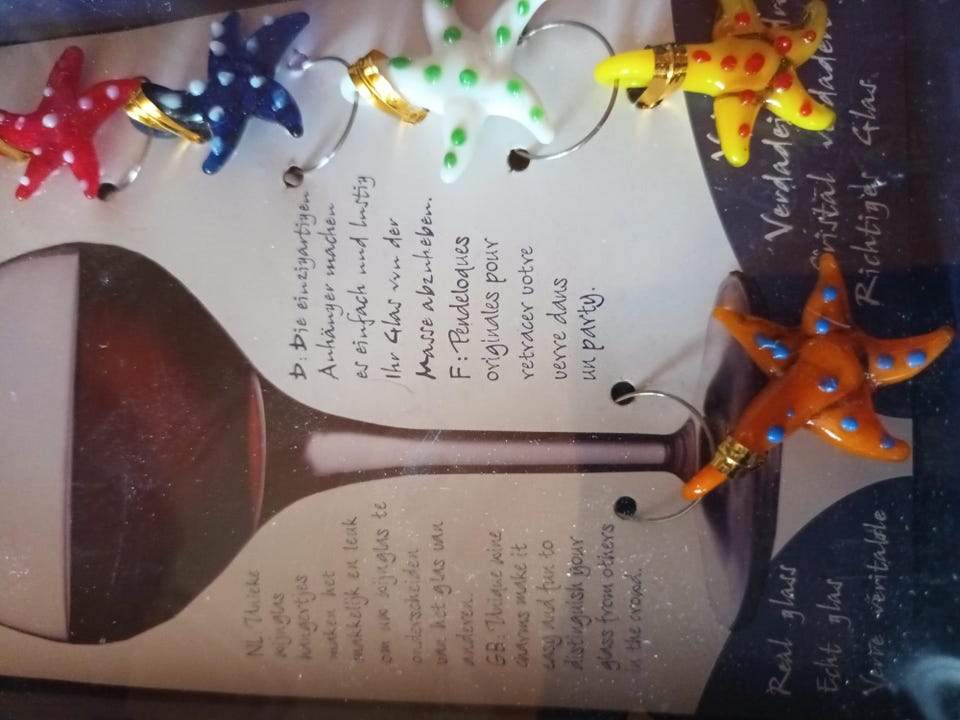 NL: Unieke
wijnglas
hangertjes
maken het
makkelijk en leuk
om uw wijnglas te
onderscheiden
van het glas van
anderen.
GB: Unique wine
charms make it
easy and fun to
distinguish your
glass from others
in the crowd.
D: Die einzigartigen
Anhänger machen
es einfach und lustig
Ihr Glas von der
Masse abzuheben.
F: Pendeloques
originales pour
retracer votre
verre dans
un party.
Real glass
Echt glas
Verre véritable
Richtiges Glas